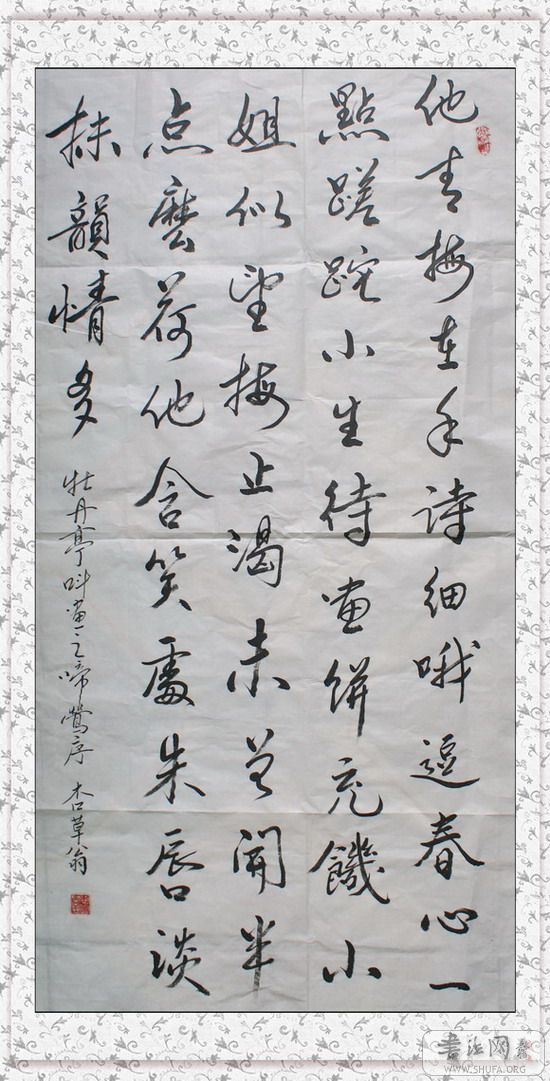 他青梅在手诗细哦逗春心一
點蹉跎小生待画饼充饑小
姐似望梅止渴未曾開半
点麽荷他含笑處朱唇淡
抹韻情多
牡丹亭叫画之啼鶯序 杏草翁
书法网
WWW.SHUFA.ORG